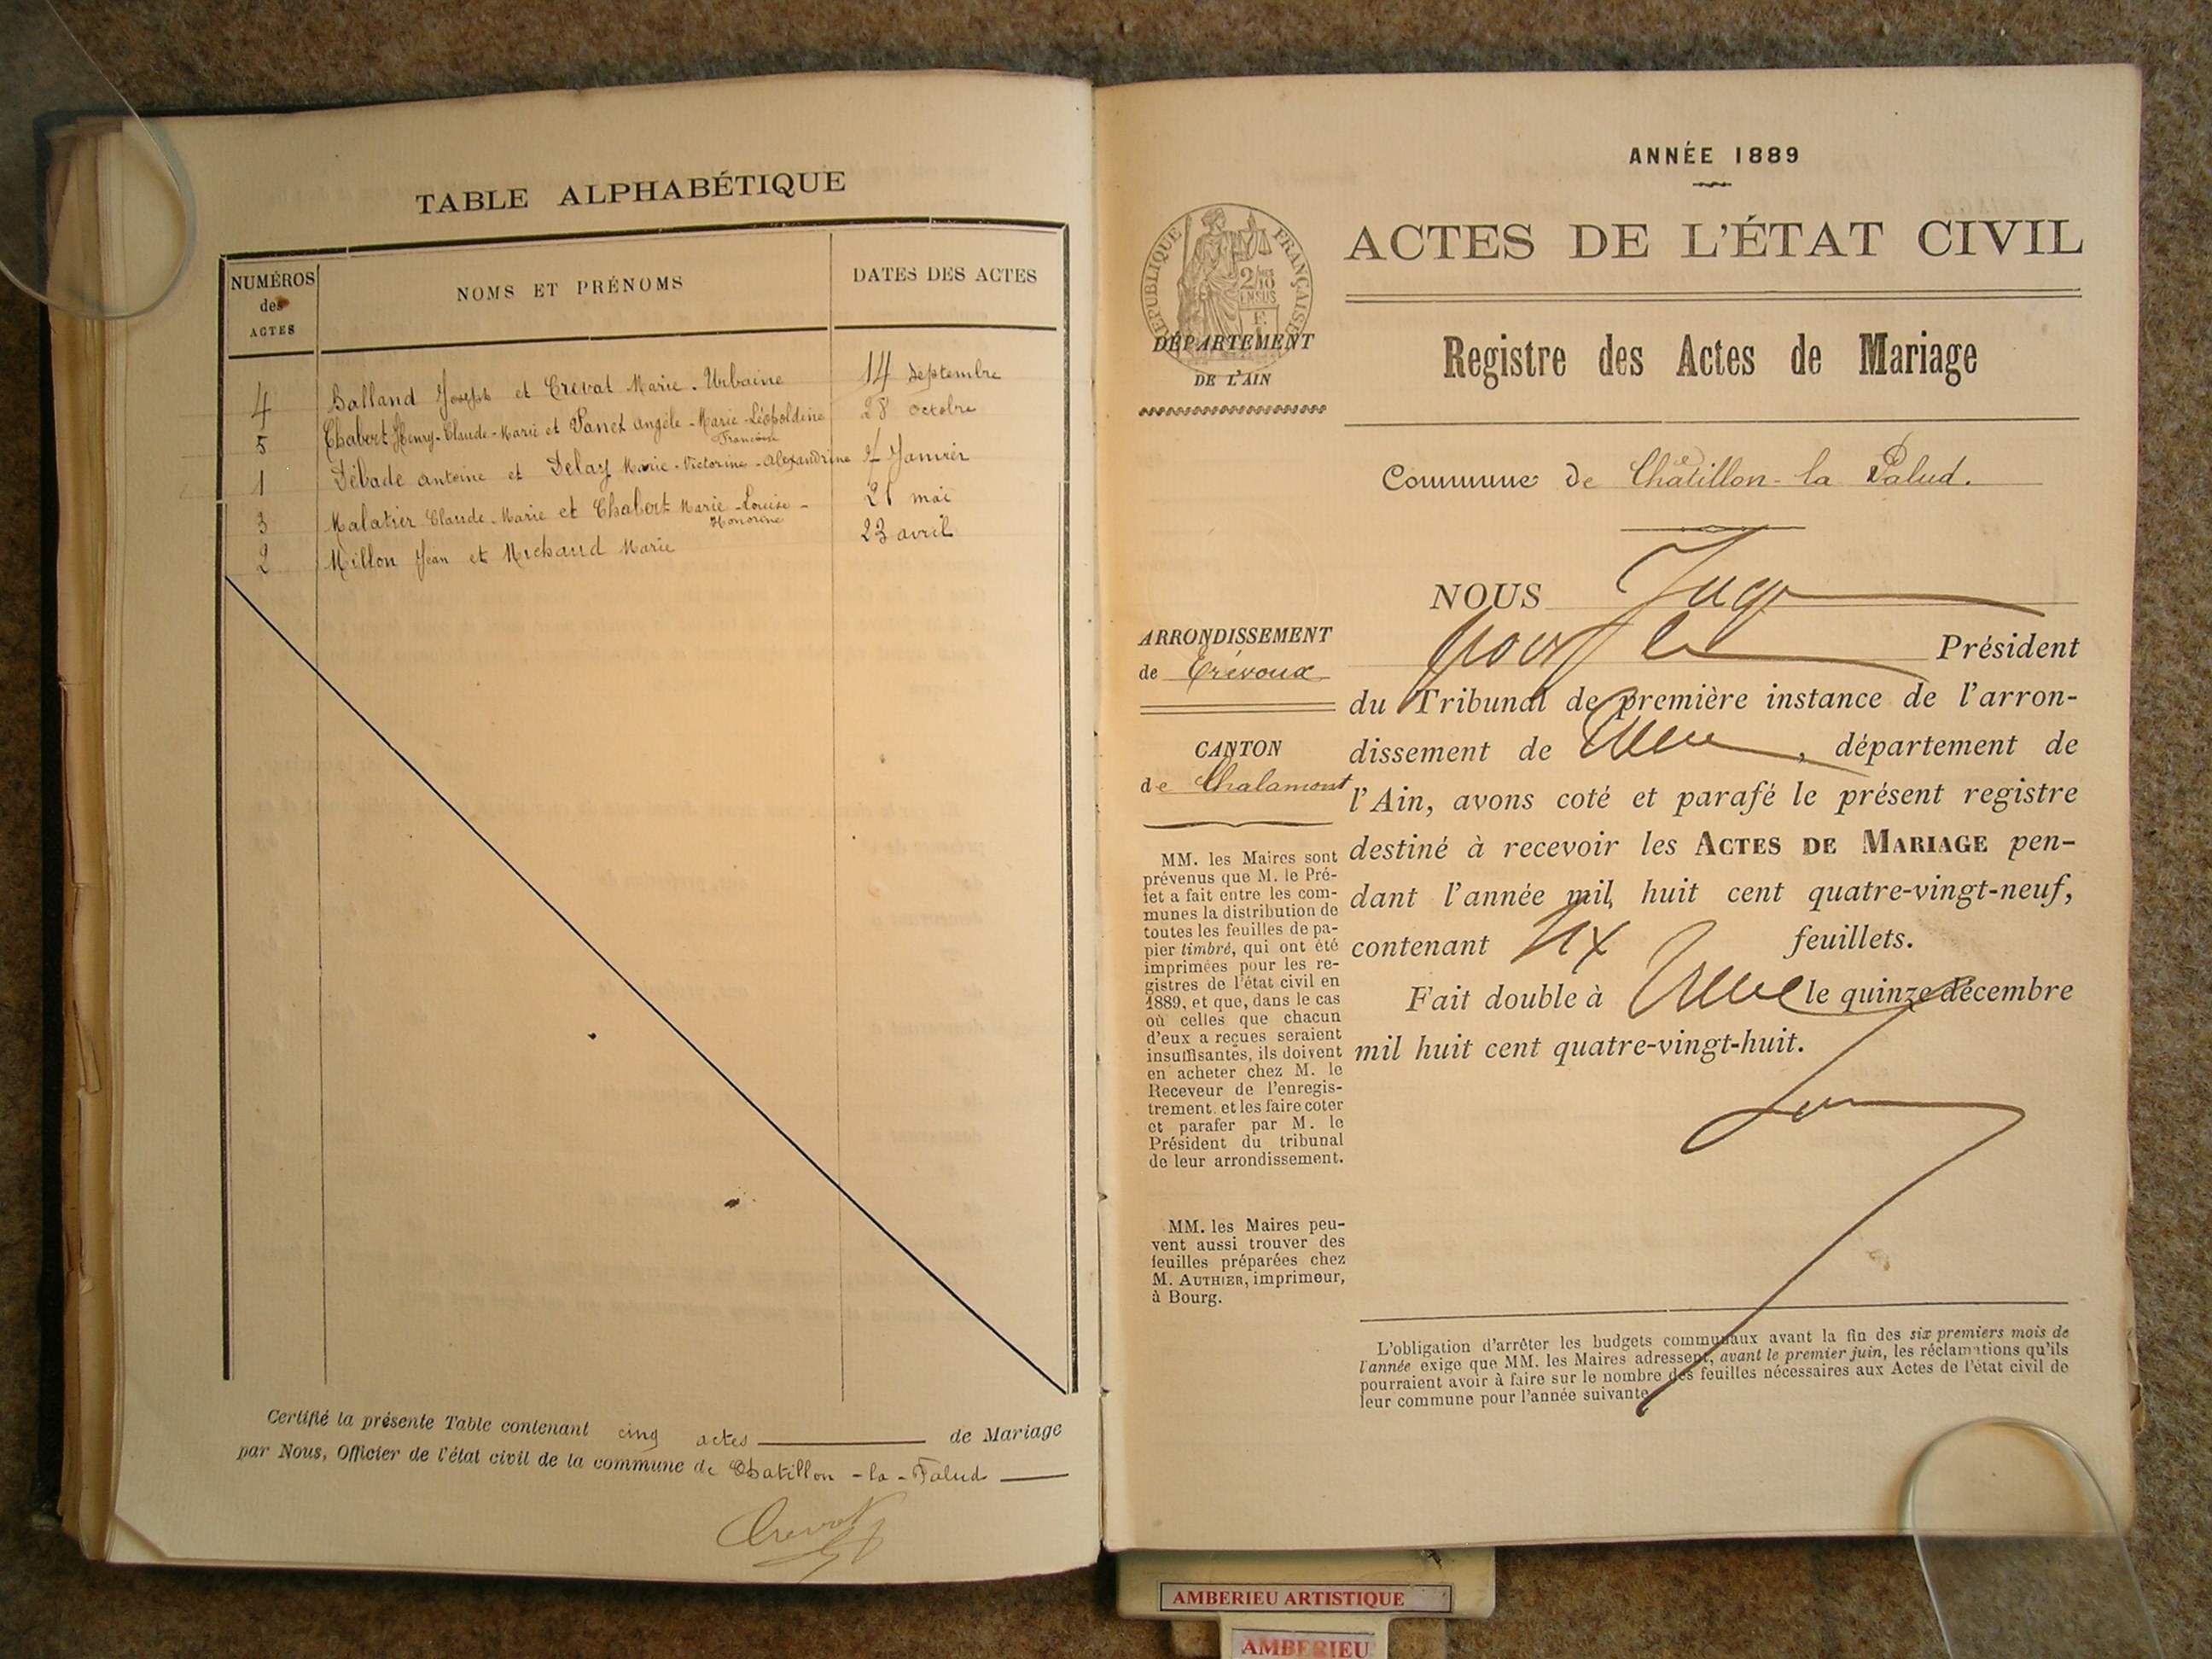 TABLE ALPHABÉTIQUE
NUMÉROS des ACTES
NOMS ET PRÉNOMS
DATES DES ACTES
4 Balland Joseph et Crevat Marie-Urbaine 14 Septembre
5 Chabert Henry-Claude-Marie et Vanet Angèle-Marie-Léopoldine 28 octobre
Françoise
1 Débade Antoine et Delay Marie-Victorine-Alexandrine Janvier
3 Malatier Claude-Marie et Chabert Marie-Louise- 21 mai
Honorine
2 Millon Jean et Michaud Marie 23 avril
Certifié la présente Table contenant cinq actes de Mariage
par Nous, Officier de l'état civil de la commune de Chatillon-la-Palud
Crevat
ANNÉE 1889
ACTES DE L'ÉTAT CIVIL
RÉPUBLIQUE FRANÇAISE
2/10 EN SUS
DÉPARTEMENT
DE L'AIN
Registre des Actes de Mariage
Commune de Châtillon-la Palud.
NOUS Juge
pour le Président
ARRONDISSEMENT
de Trévoux
du Tribunal de première instance de l'arron-
dissement de , département de
CANTON
de Chalamont
l'Ain, avons coté et parafé le présent registre
destiné à recevoir les ACTES DE MARIAGE pen-
dant l'année mil huit cent quatre-vingt-neuf,
contenant six feuillets.
Fait double à le quinze décembre
mil huit cent quatre-vingt-huit.
MM. les Maires sont
prévenus que M. le Pré-
fet a fait entre les com-
munes la distribution de
toutes les feuilles de pa-
pier timbré, qui ont été
imprimées pour les re-
gistres de l'état civil en
1889, et que, dans le cas
où celles que chacun
d'eux a reçues seraient
insuffisantes, ils doivent
en acheter chez M. le
Receveur de l'enregis-
trement, et les faire coter
et parafer par M. le
Président du tribunal
de leur arrondissement.
MM. les Maires peu-
vent aussi trouver des
feuilles préparées chez
M. AUTHIER, imprimeur,
à Bourg.
L'obligation d'arrêter les budgets communaux avant la fin des six premiers mois de
l'année exige que MM. les Maires adressent, avant le premier juin, les réclamations qu'ils
pourraient avoir à faire sur le nombre des feuilles nécessaires aux Actes de l'état civil de
leur commune pour l'année suivante.
AMBERIEU ARTISTIQUE
AMBERIEU